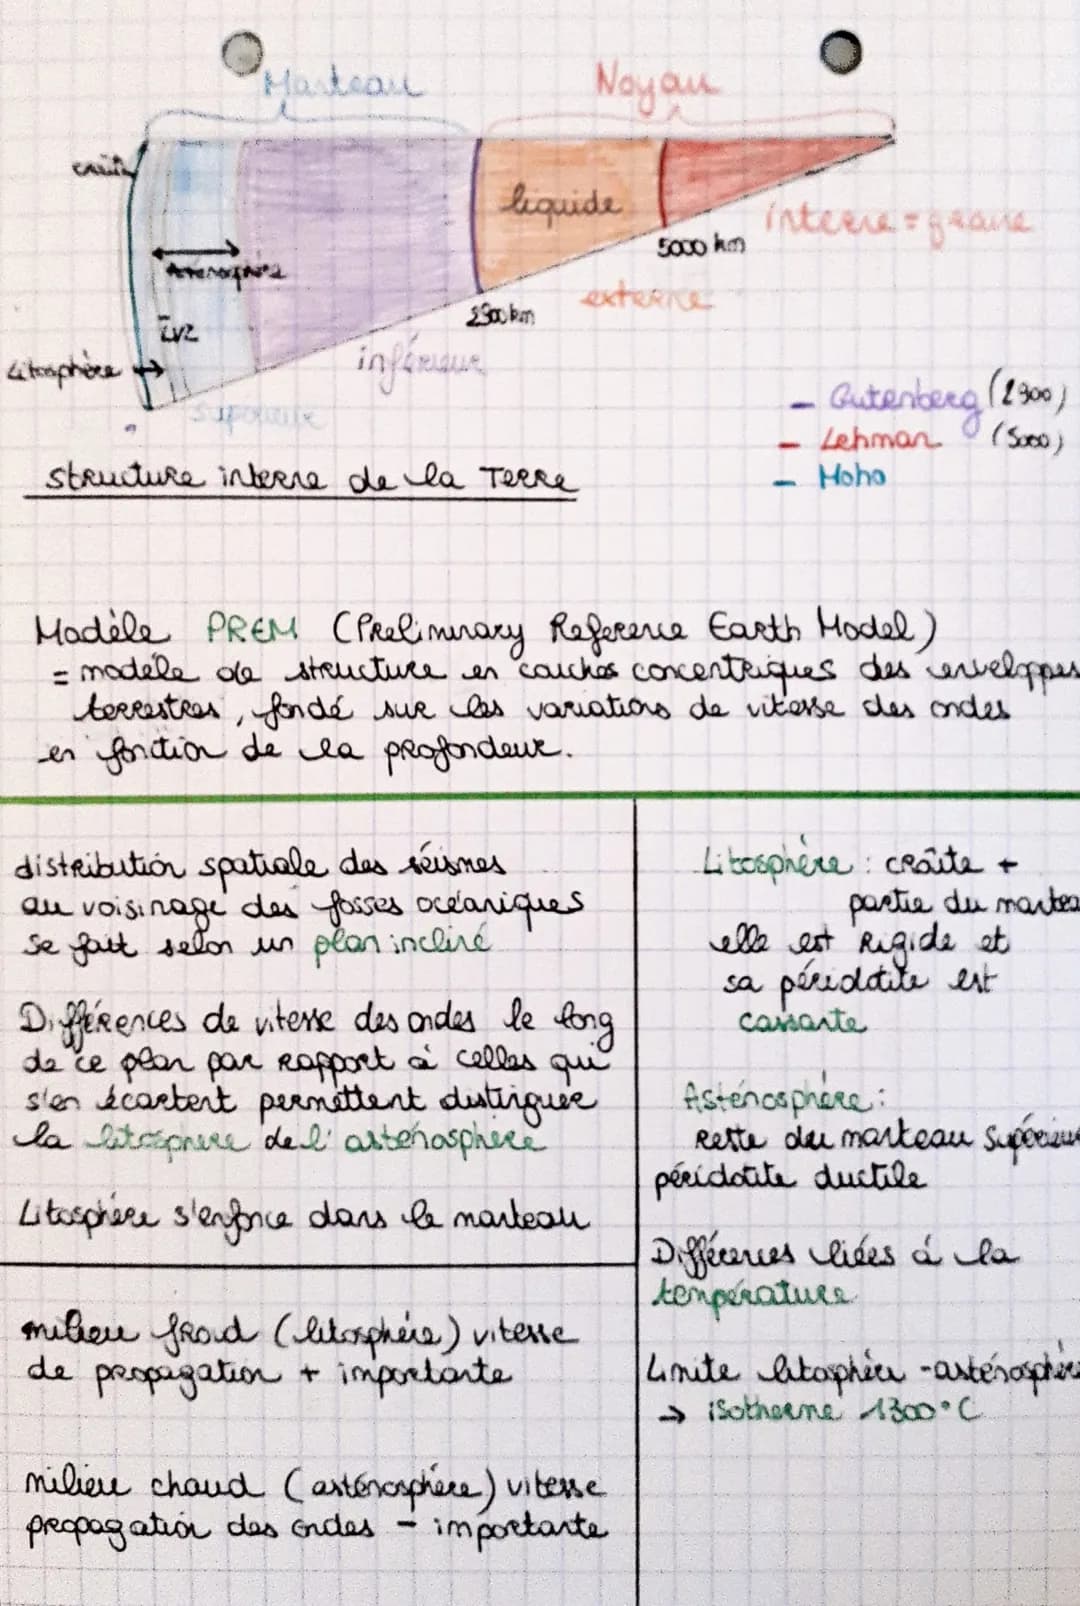 Manteau
Noyau
croûte
liquide
interne = graine
5000 km
Asténosphère
externe
2900 km
LVZ
inférieur
Litosphère →
supérieur
- Gutenberg (2900)
- Lehman (5000)
- Moho
structure interne de la Terre
Modèle PREM (Preliminary Reference Earth Model)
= modèle de structure en couches concentriques des enveloppes
terrestres, fondé sur les variations de vitesse des ondes
en fonction de la profondeur.
distribution spatiale des séismes
au voisinage des fosses océaniques
se fait selon un plan incliné
Différences de vitesse des ondes le long
de ce plan par rapport à celles qui
s'en écartent permettent distinguer
la litosphère de l'asténosphère
Litosphère s'enfonce dans le manteau
milieu froid (litosphère) vitesse
de propagation + importante
milieu chaud (asténosphère) vitesse
propagation des ondes - importante
Litosphère : croûte +
partie du mantea
elle est Rigide et
sa péridotite est
cassante
Asténosphère :
Reste du manteau Supérieur
péridotite ductile
Différences liées à la
température
Limite litosphère - asténosphère
→ isotherme 1300°C